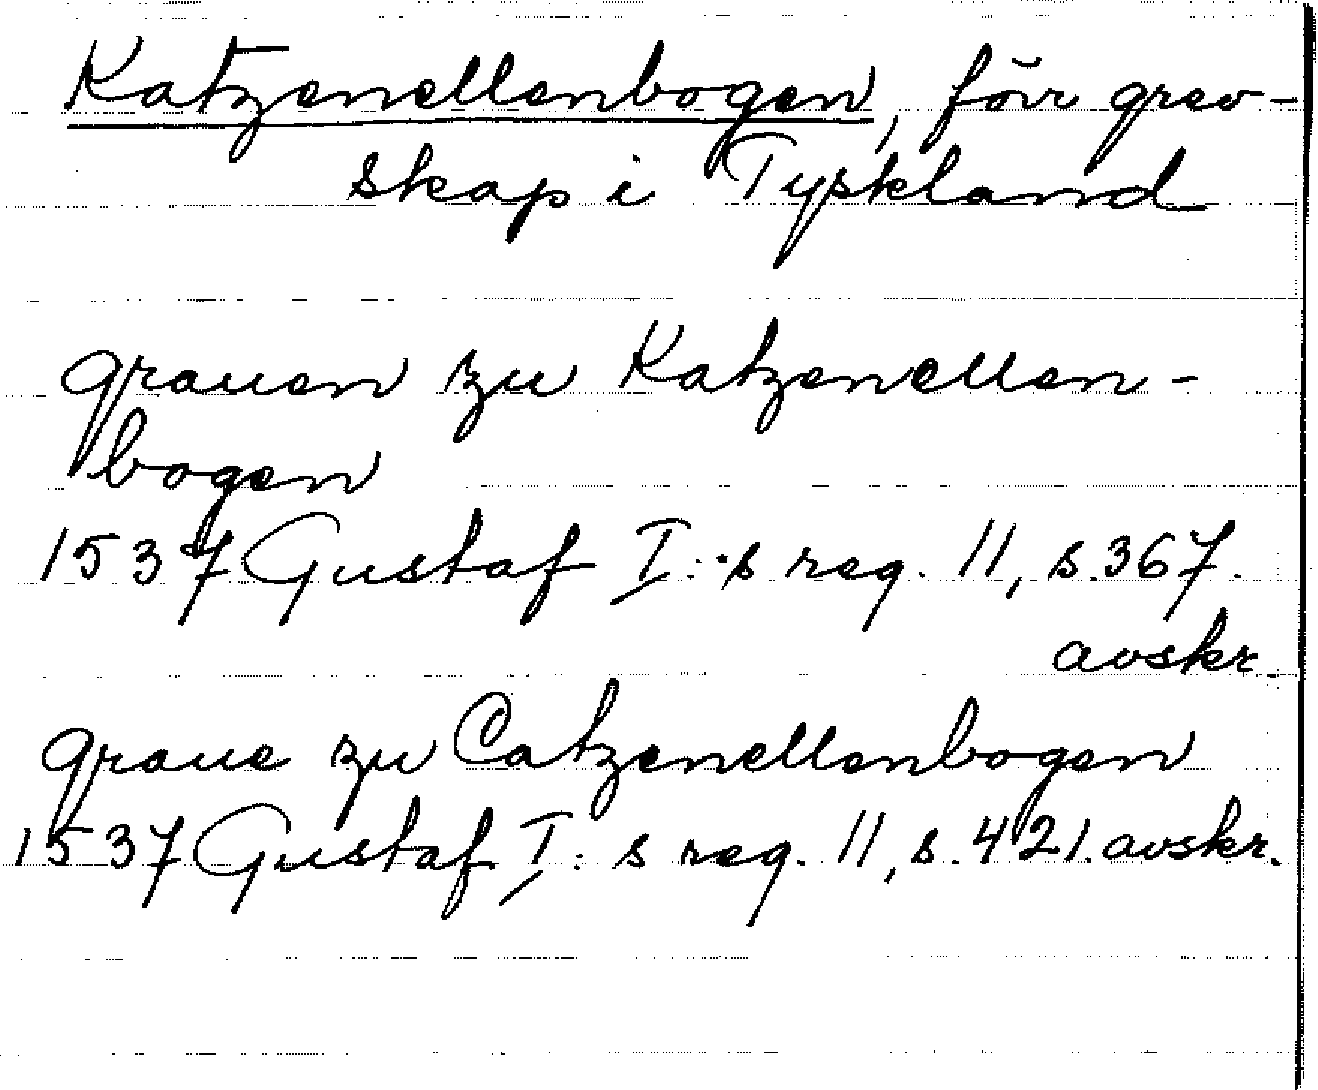 Katzenellenbogen, förr grev-
skap i Tyskland
grauen zu Katzenellen-
bogen
1537 Gustaf I:s reg. 11, s. 367.
avskr.
graue zu Catzenellenbogen
1537 Gustaf I:s reg. 11, s. 421. avskr.